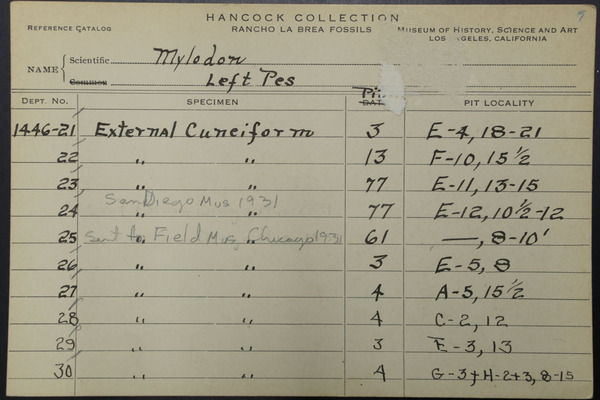 9
HANCOCK COLLECTION
REFERENCE CATALOG RANCHO LA BREA FOSSILS MUSEUM OF HISTORY, SCIENCE AND ART
LOS ANGELES, CALIFORNIA
NAME Scientific Mylodon
Common Left Pes
DEPT. NO. SPECIMEN Pit DATE PIT LOCALITY
1446-21 External Cuneiform 3 E-4, 18-21
22 " " 13 F-10, 15 1/2
23 " " 77 E-11, 13-15
San Diego Mus 1931
24 " " 77 E-12, 10 1/2-12
25 Sent to Field Mus, Chicago 1931 61 —, 8-10'
26 " " 3 E-5, 8
27 " " 4 A-5, 15 1/2
28 " " 4 C-2, 12
29 " " 3 E-3, 13
30 " " 4 G-3+H-2+3, 8-15